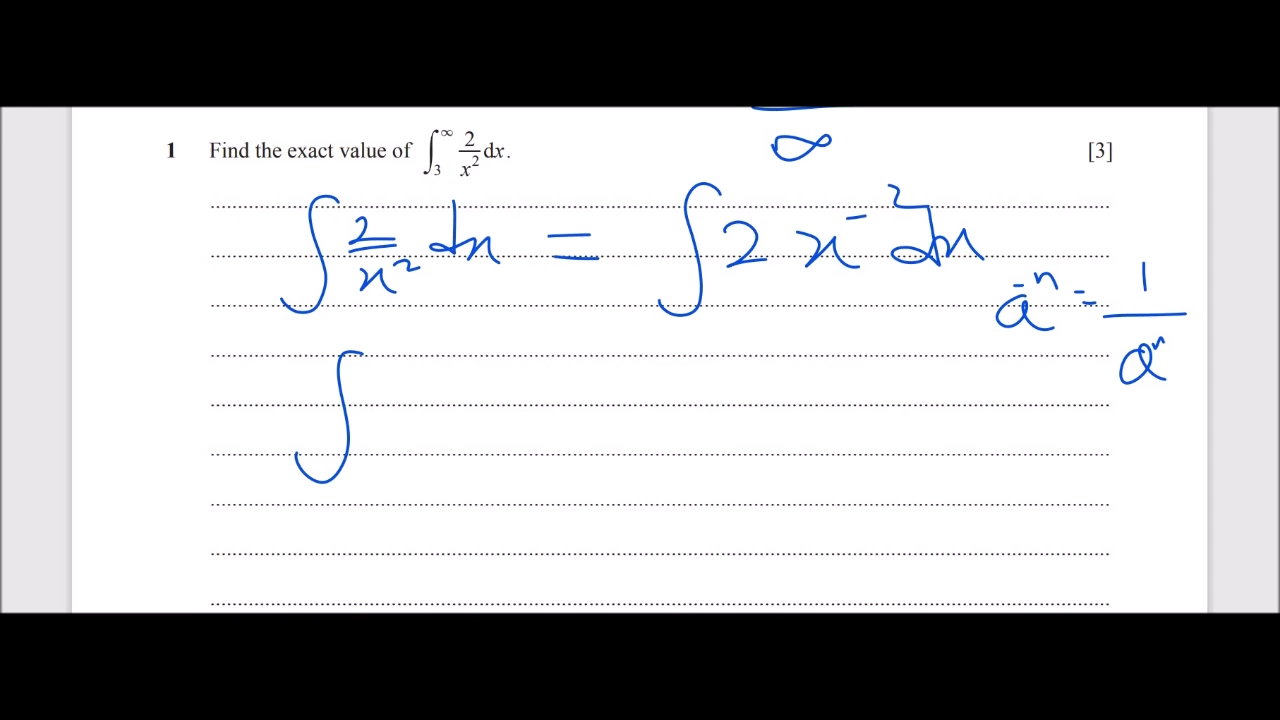 1 Find the exact value of ∫₃^∞ 2/x² dx. [3]
∞
∫ 2/x² dx = ∫ 2 x⁻² dx
a⁻ⁿ = 1/aⁿ
∫